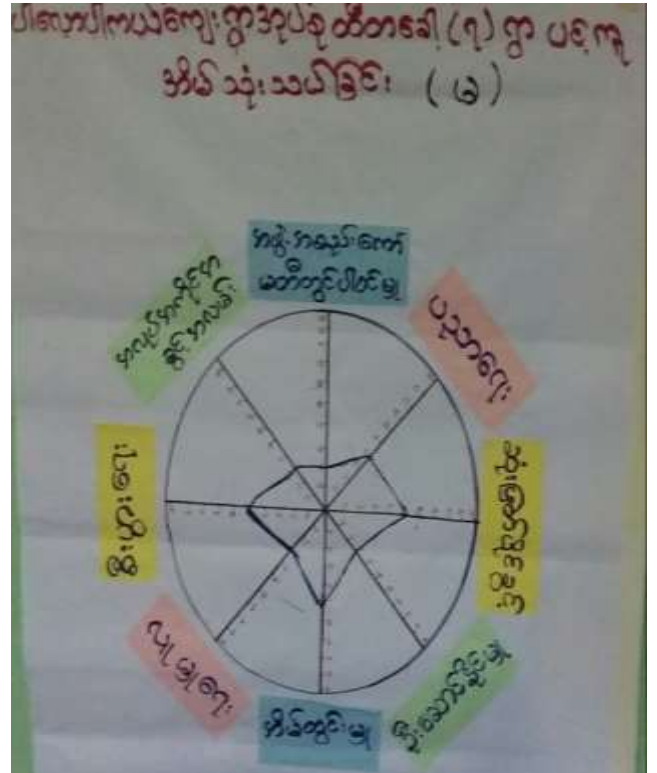 ပါလောပါကယ်ကျေးရွာအုပ်စု ထီတခေါ့ (၇) ရွာ ပင့်ကူ
အိမ် သုံးသပ်ခြင်း (မ)
အဖွဲ့အစည်းကော်
မတီတွင်ပါဝင်မှု
ပညာရေး
ဆုံးဖြတ်ပိုင်ခွင့်
ဦးဆောင်နိုင်မှု
အိမ်တွင်းမှု
လူမှုရေး
စီးပွါးရေး
အလုပ်အကိုင်အ
ခွင့်အလမ်း